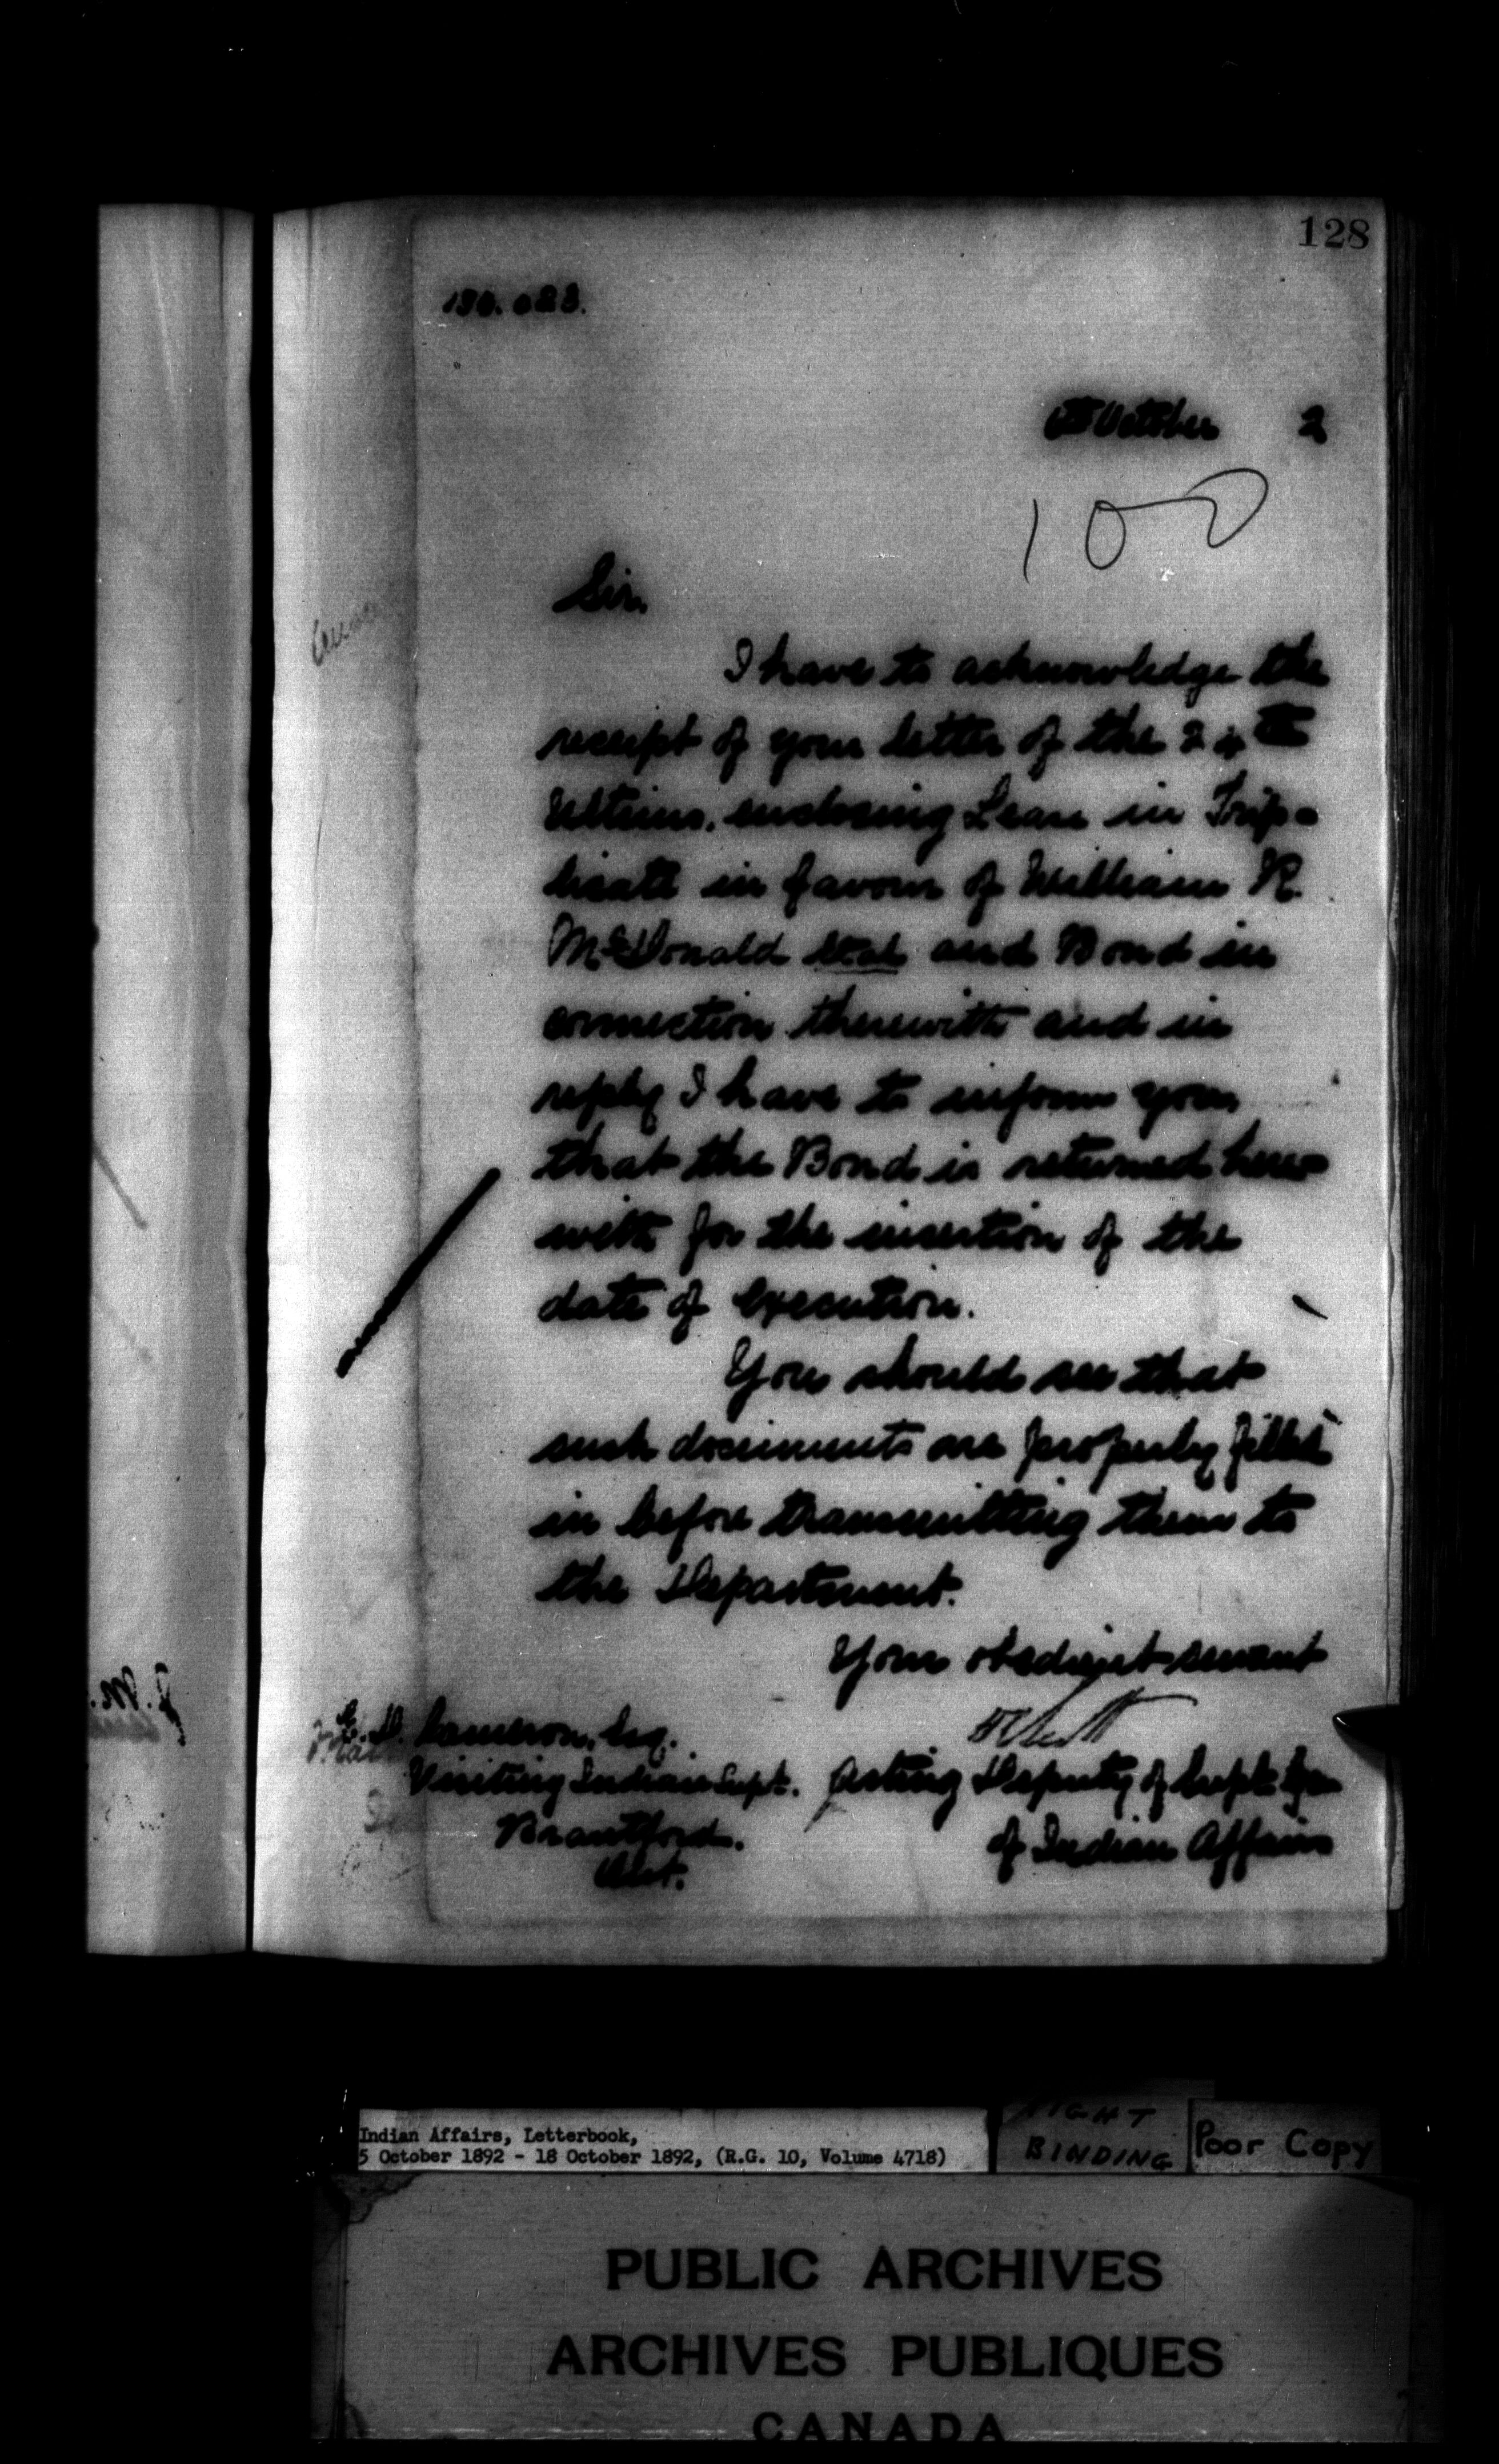 128
130.023.
6th October 2
100
Sir,
I have to acknowledge the
receipt of your letter of the 24th
Ultimo, enclosing Lease in Trip-
licate in favour of William R.
McDonald et al and Bond in
connection therewith and in
reply I have to inform you
that the Bond is returned here-
with for the insertion of the
date of execution.
You should see that
such documents are properly filled
in before transmitting them to
the Department.
Your obedient servant
E. D. Cameron, Esq.
Visiting Indian Supt.
Brantford.
Ont.
Acting Deputy of Supt. Gen
of Indian Affairs
Indian Affairs, Letterbook,
5 October 1892 - 18 October 1892, (R.G. 10, Volume 4718)
TIGHT
BINDING
Poor Copy
PUBLIC ARCHIVES
ARCHIVES PUBLIQUES
CANADA